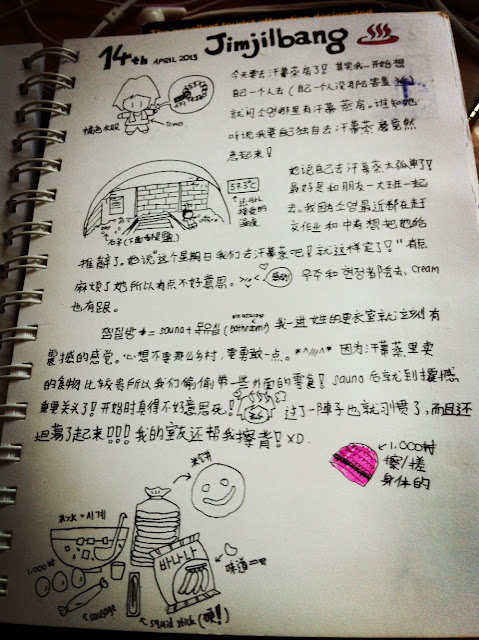 14th APRIL 2013 Jimjilbang
今天要去汗蒸幕房了! 其实我一开始想
自己一个人去 (自己一个人没有陷害羞
就问소영哪里有汗蒸幕房。谁知她
听说我要自己独自去汗蒸幕房竟然
惹起来!
橘色衣服
Towel
她说自己去汗蒸幕太孤单了!
最好是和朋友一大班一起
去。我因为소영最近都在赶
交作业和中考想把她给
57.3℃
还可以接受的温度
石子(下面都是盐)
推辞了。她说“这个星期日我们去汗蒸幕吧! 就这样定了!”有点
麻烦了她所以有点不好意思。>~< 感动! 우주和현정都陪去, cream
也有跟。
찜질방 = sauna + 목욕실 (bathroom!) 我一进女性的更衣室就立刻有
震撼的感觉。心想不要那么乡村,要勇敢一点。*^///^* 因为汗蒸幕里卖
的食物比较贵所以我们偷偷带一些外面的零食! sauna 后就到
重要关头了! 开始时真得不好意思死! 过了一阵子也就习惯了,而且还
迴荡了起来!!! 我的室友还帮我擦背! XD.
1,000₩
擦/搓
身体的
식혜
1,000₩
바나나
味道一叫
sausage
squid stick (硬!)